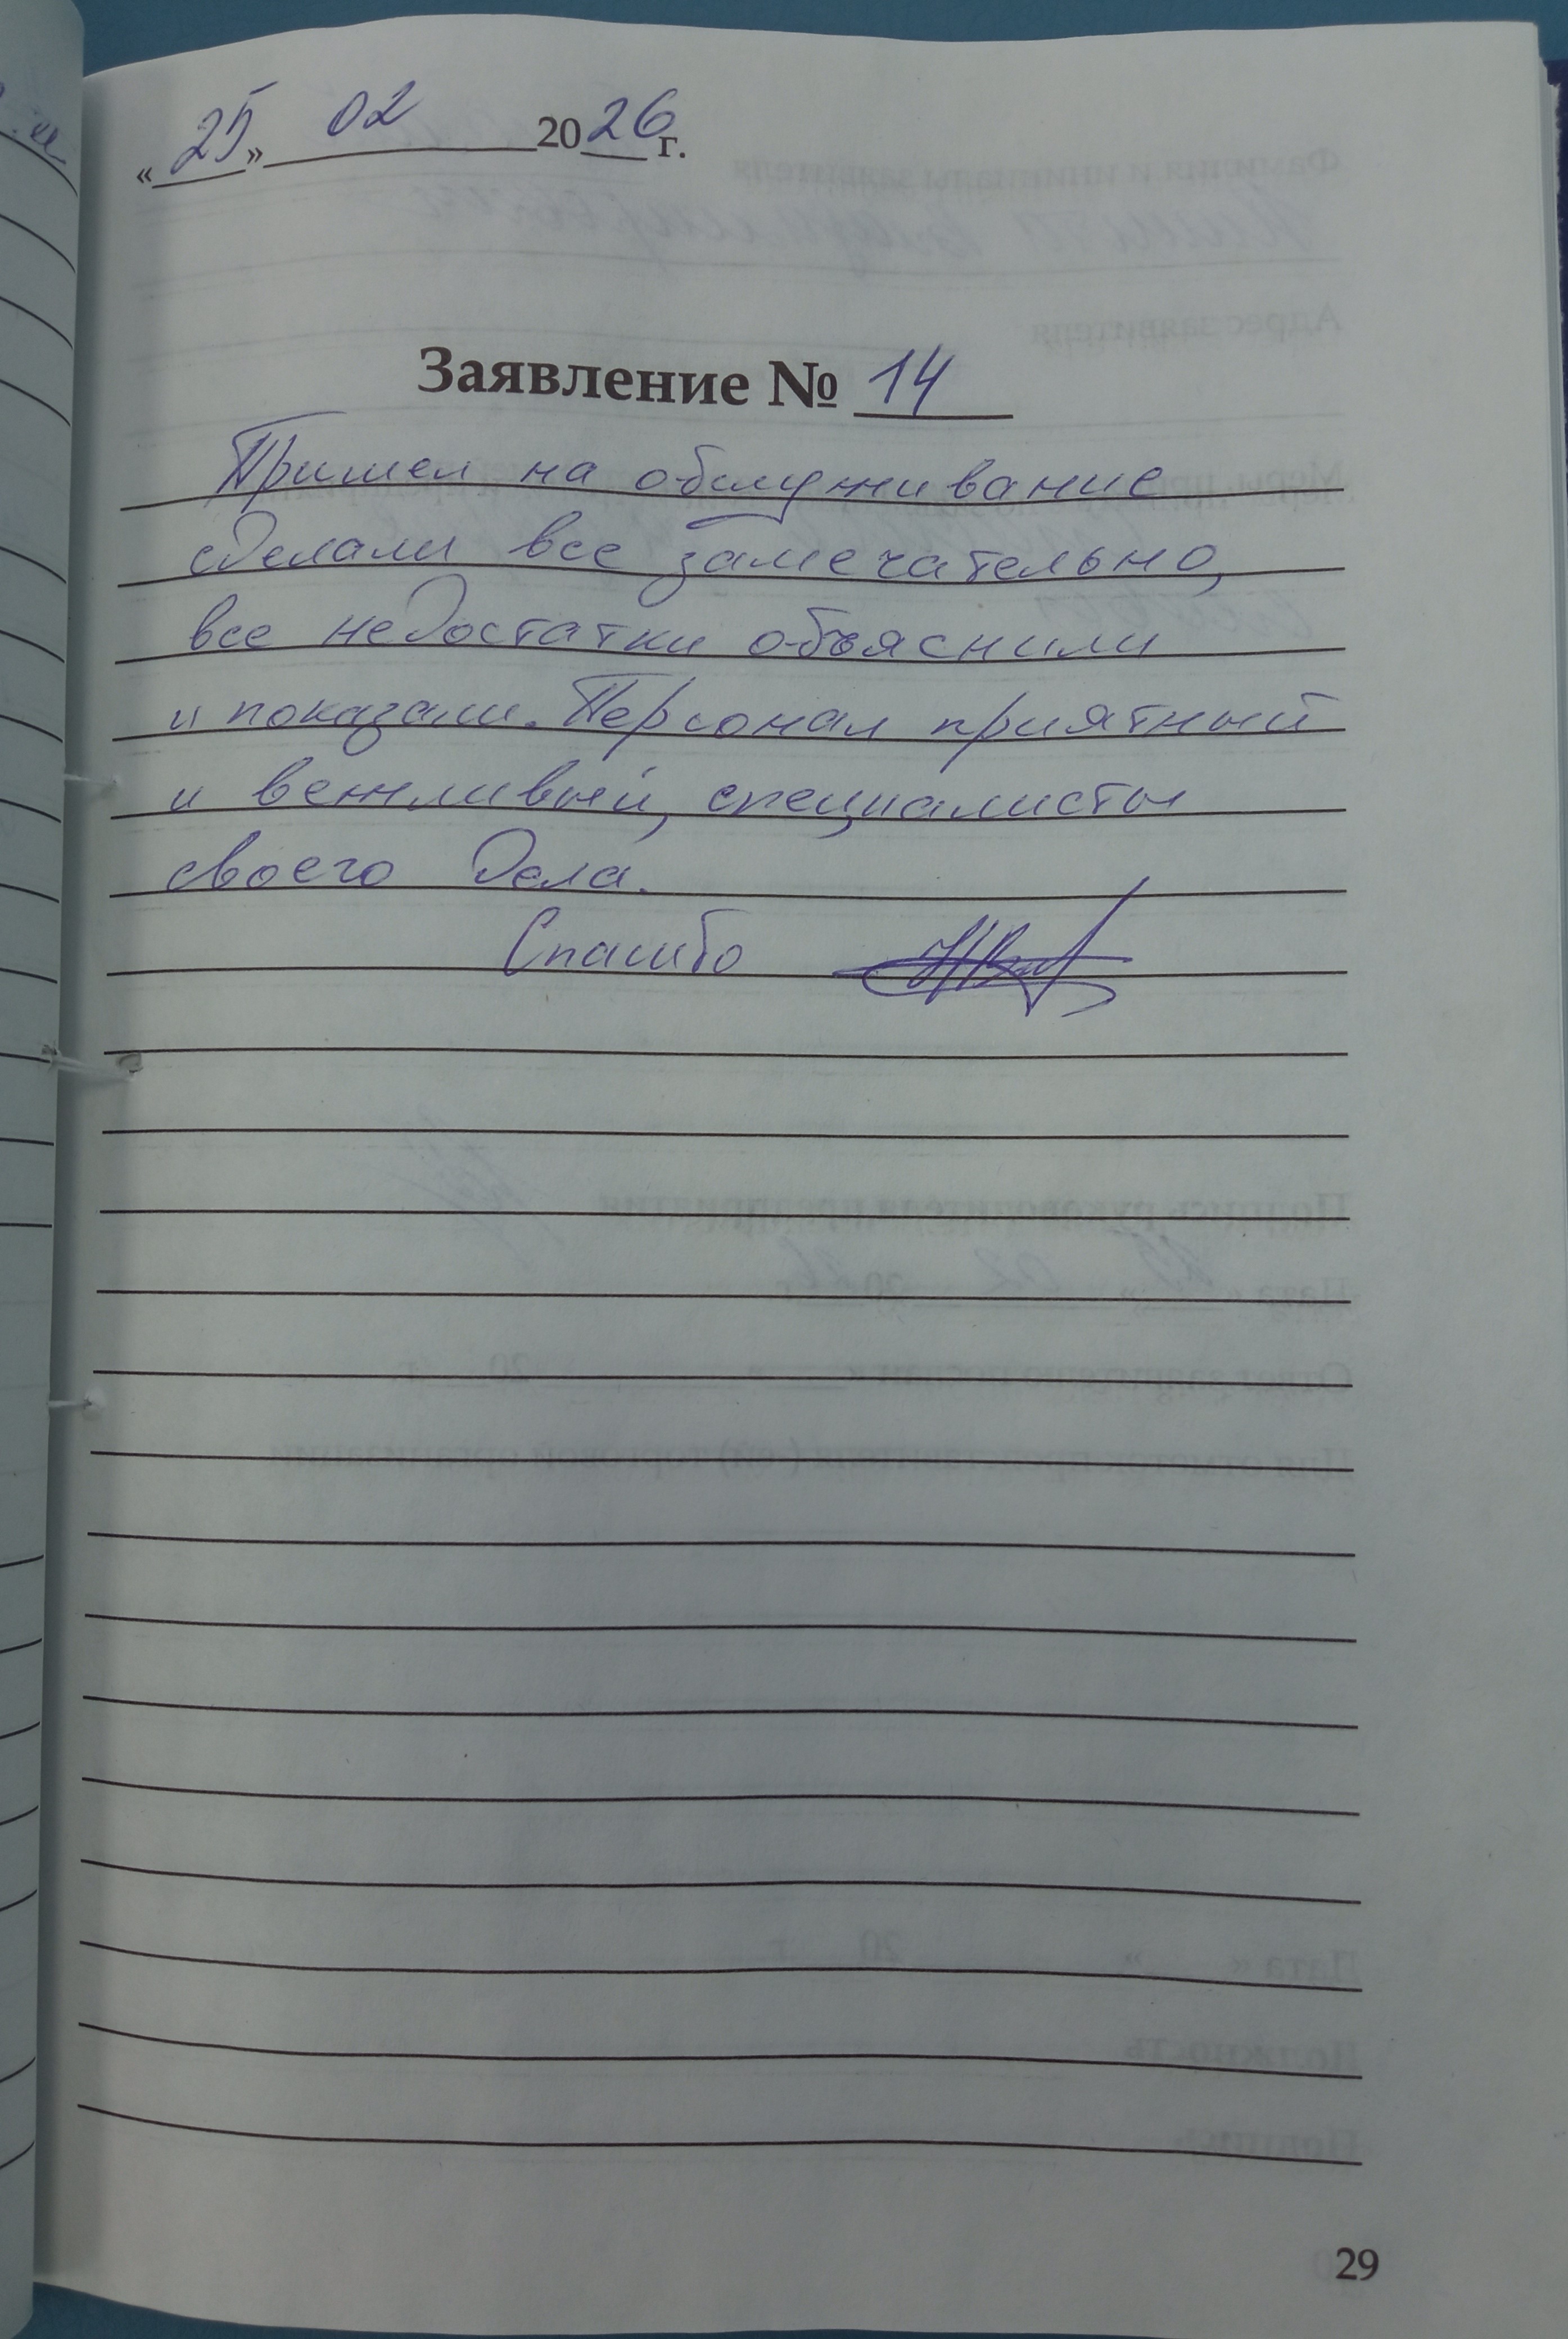 «25» 02 2026 г.
Заявление № 14
Пришел на обслуживание
сделали все замечательно,
все недостатки объяснили
и показали. Персонал приятный
и вежливый, специалисты
своего дела.
Спасибо
29